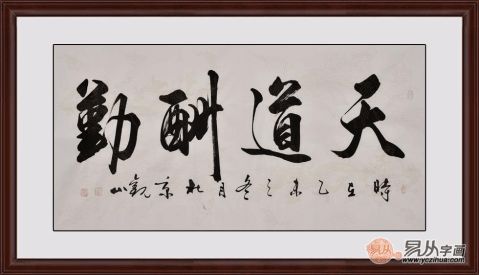 天道酬勤
時在乙未之冬月於京觀山
易从字画
www.yczihua.com